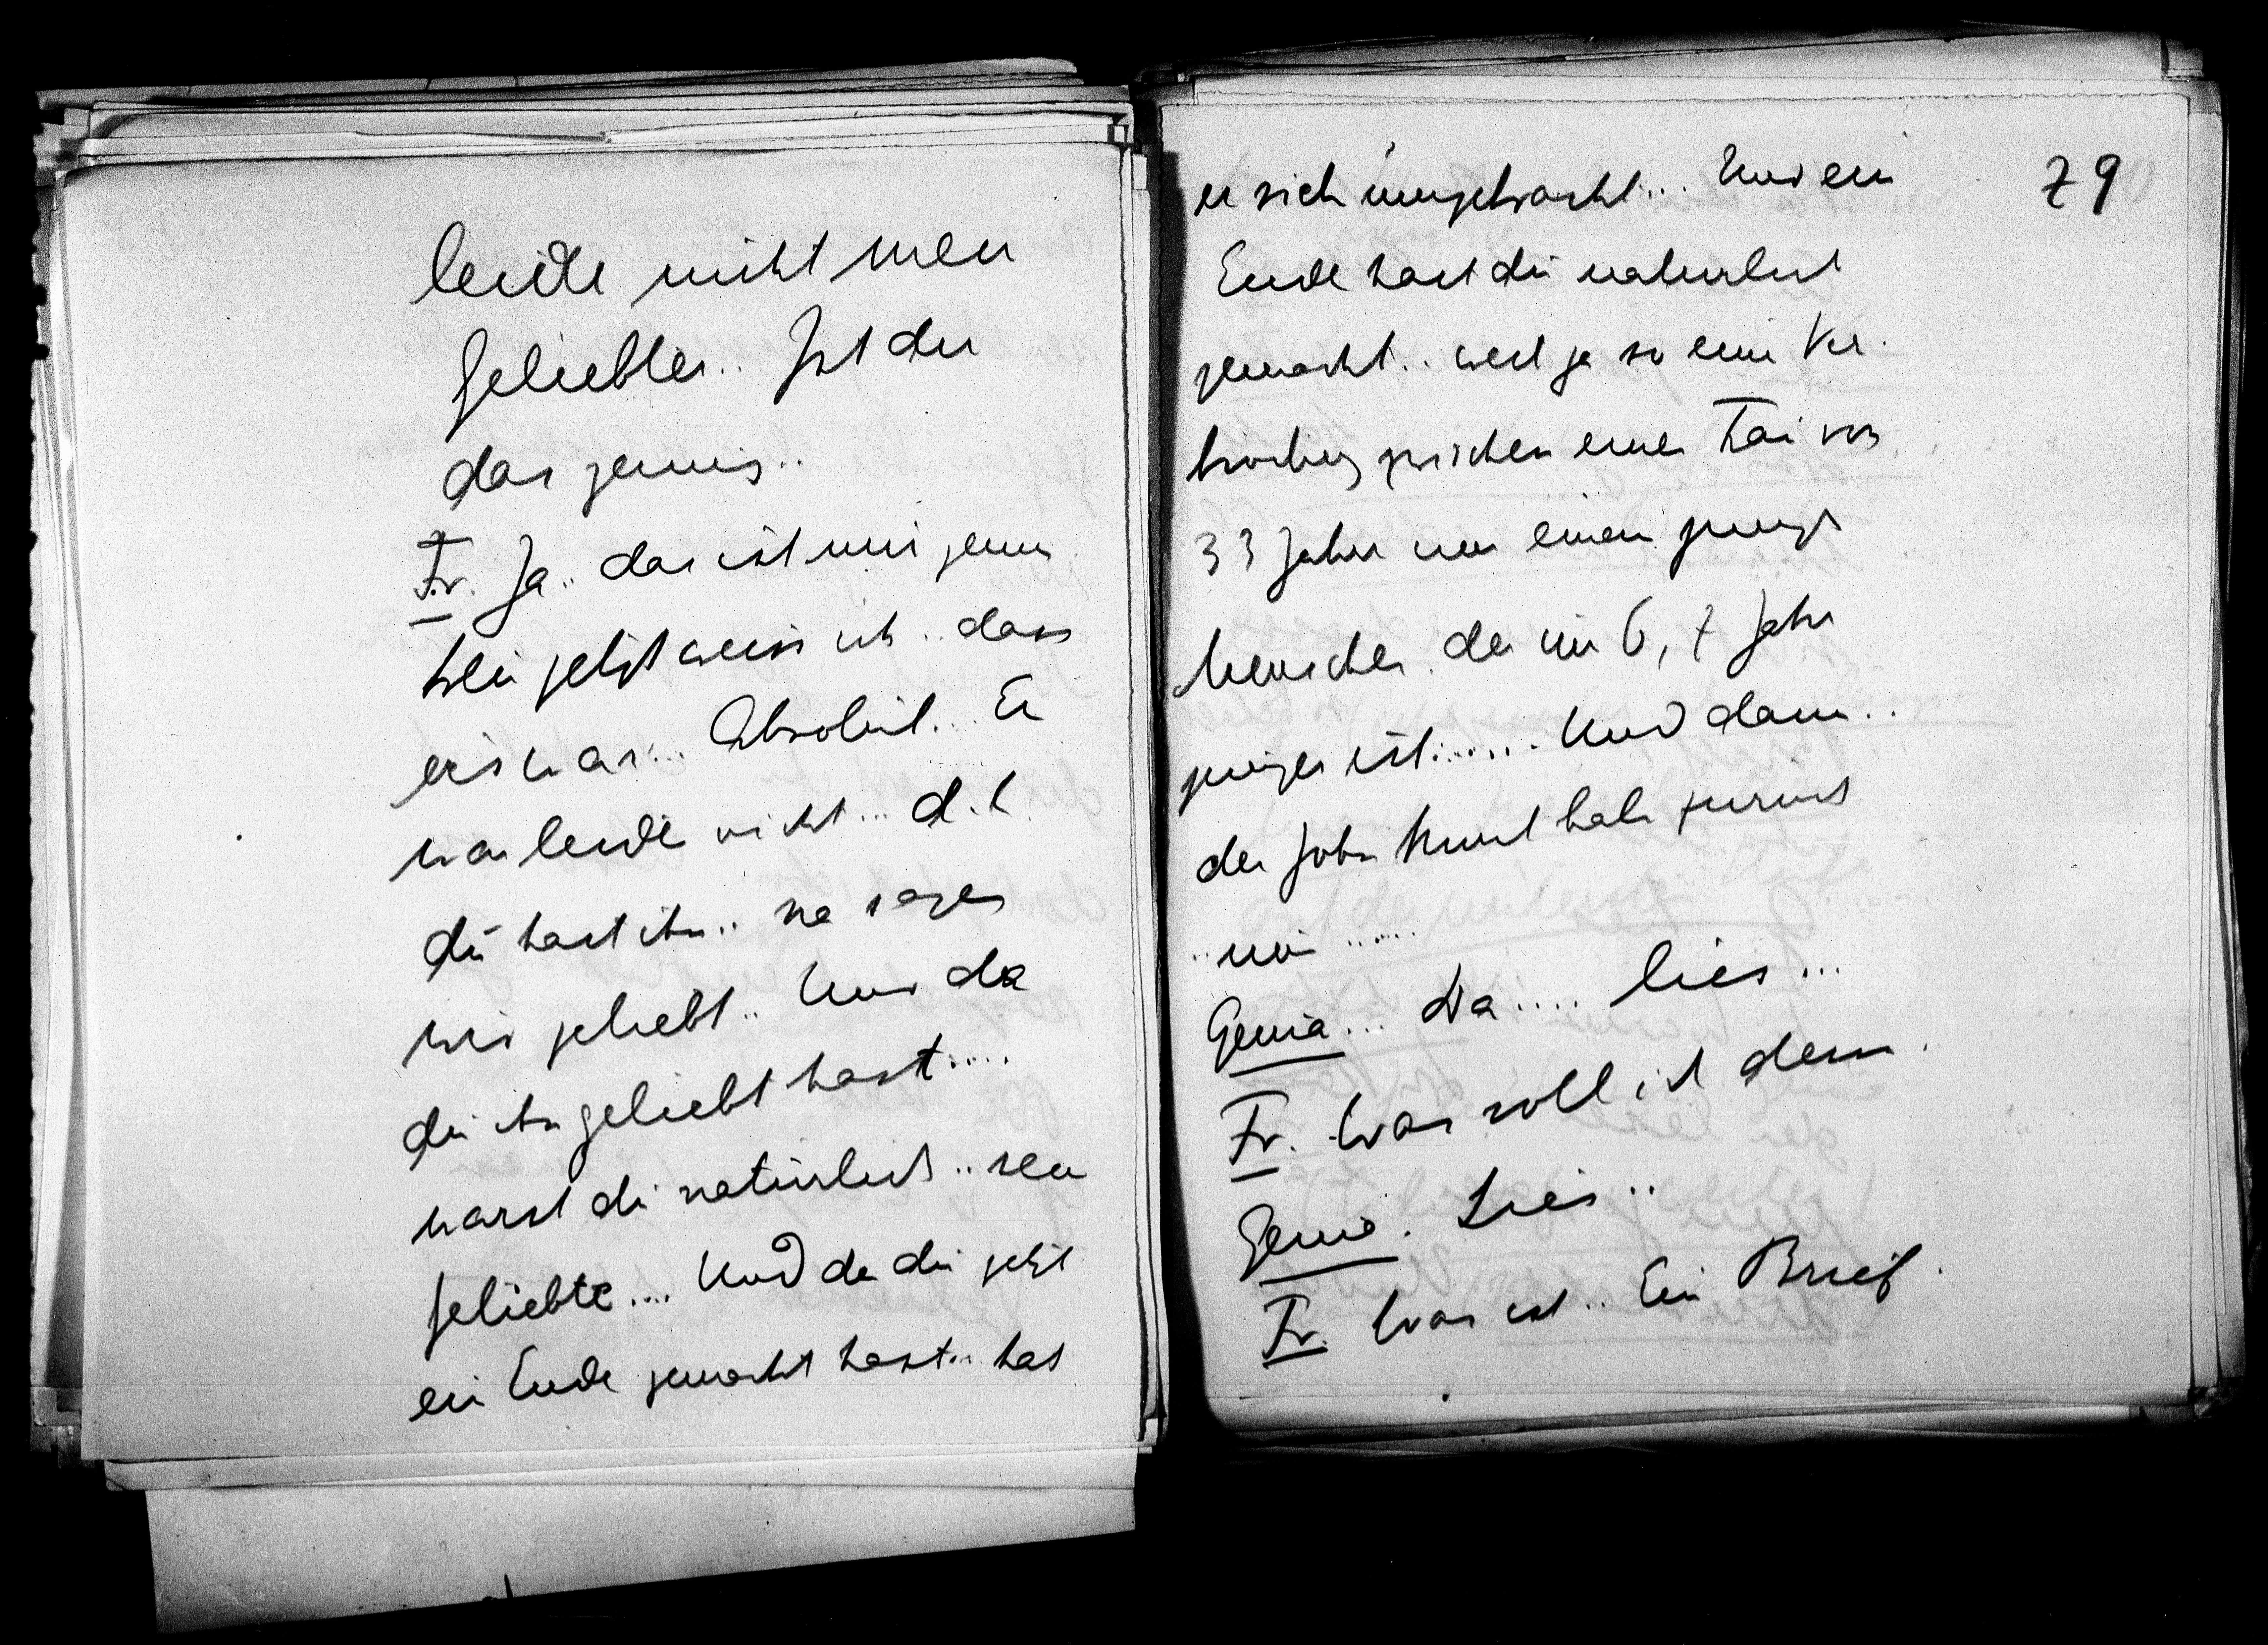 leider nicht mein
Geliebter.. Ist dir
das genug..
Fr. Ja.. das ist mir genug
Denn jetzt weiss ich.. dass
ers war... Absolut... Er
war leider nicht... d. h.
du hast ihn.. na sagen
wir geliebt.. Und da
du ihn geliebt hast.....
warst du natürlich.. seine
Geliebte.... Und da du jetzt
ein Ende gemacht hast.. hat
79
er sich umgebracht... Und ein
Ende hast du natürlich
gemacht.. weil ja so eine Ver-
bindung zwischen einer Frau von
33 Jahren und einem jungen
Menschen der um 6, 7 Jahre
jünger ist....... Und dann..
der Sohn
.. nun ......
Genia... Da.... lies...
Fr. Was soll ich denn.
Genia. Lies..
Fr. Was ist.. Ein Brief.